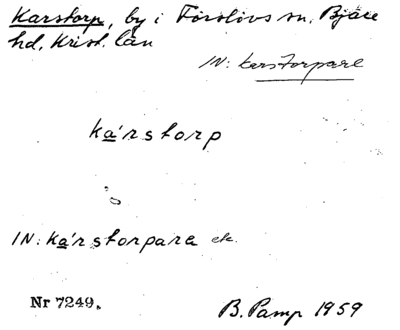 Karstorp, by i Förslövs sn. Bjäre
hd. Krist. län
IN: karstorpare
ká̱rstorp
IN: ká̱rstorpara etc.
Nr 7249.
B. Pamp 1959